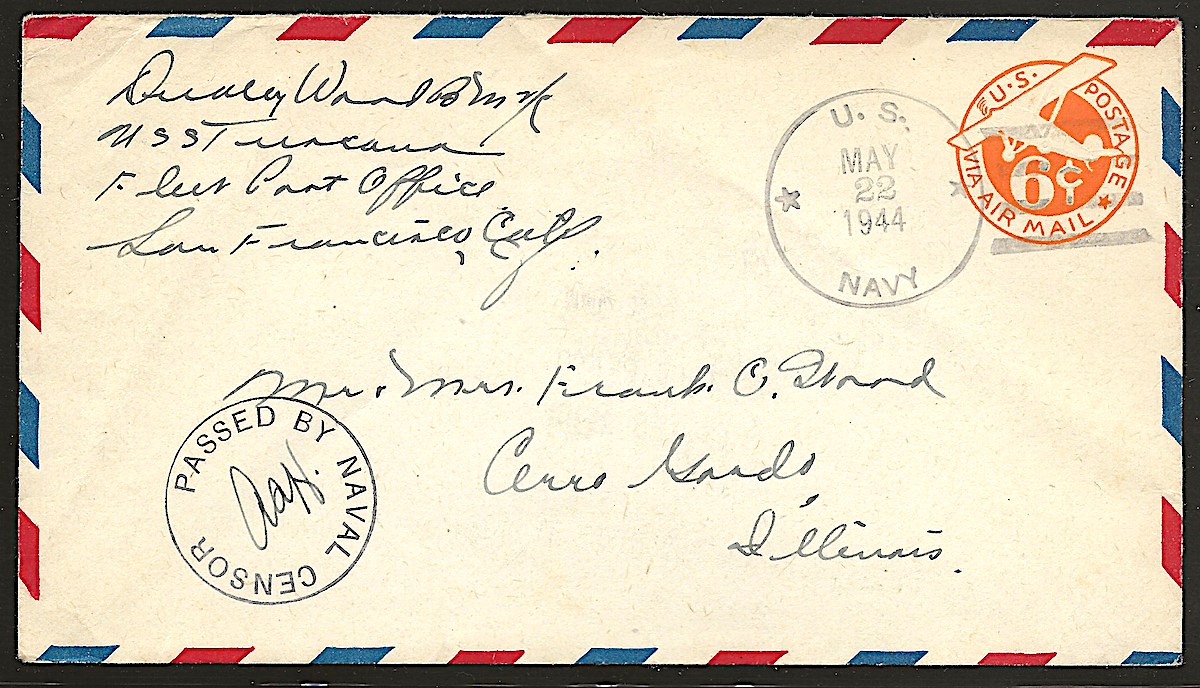 Dudley Wood BM2/c
USS Tuscana
Fleet Post Office
San Francisco, Calif.
U. S.
MAY
22
1944
NAVY
U.S. POSTAGE
6¢
VIA AIR MAIL
Mr. Mrs. Frank. C. Wood
Cerro Gordo,
Illinois.
PASSED BY NAVAL CENSOR